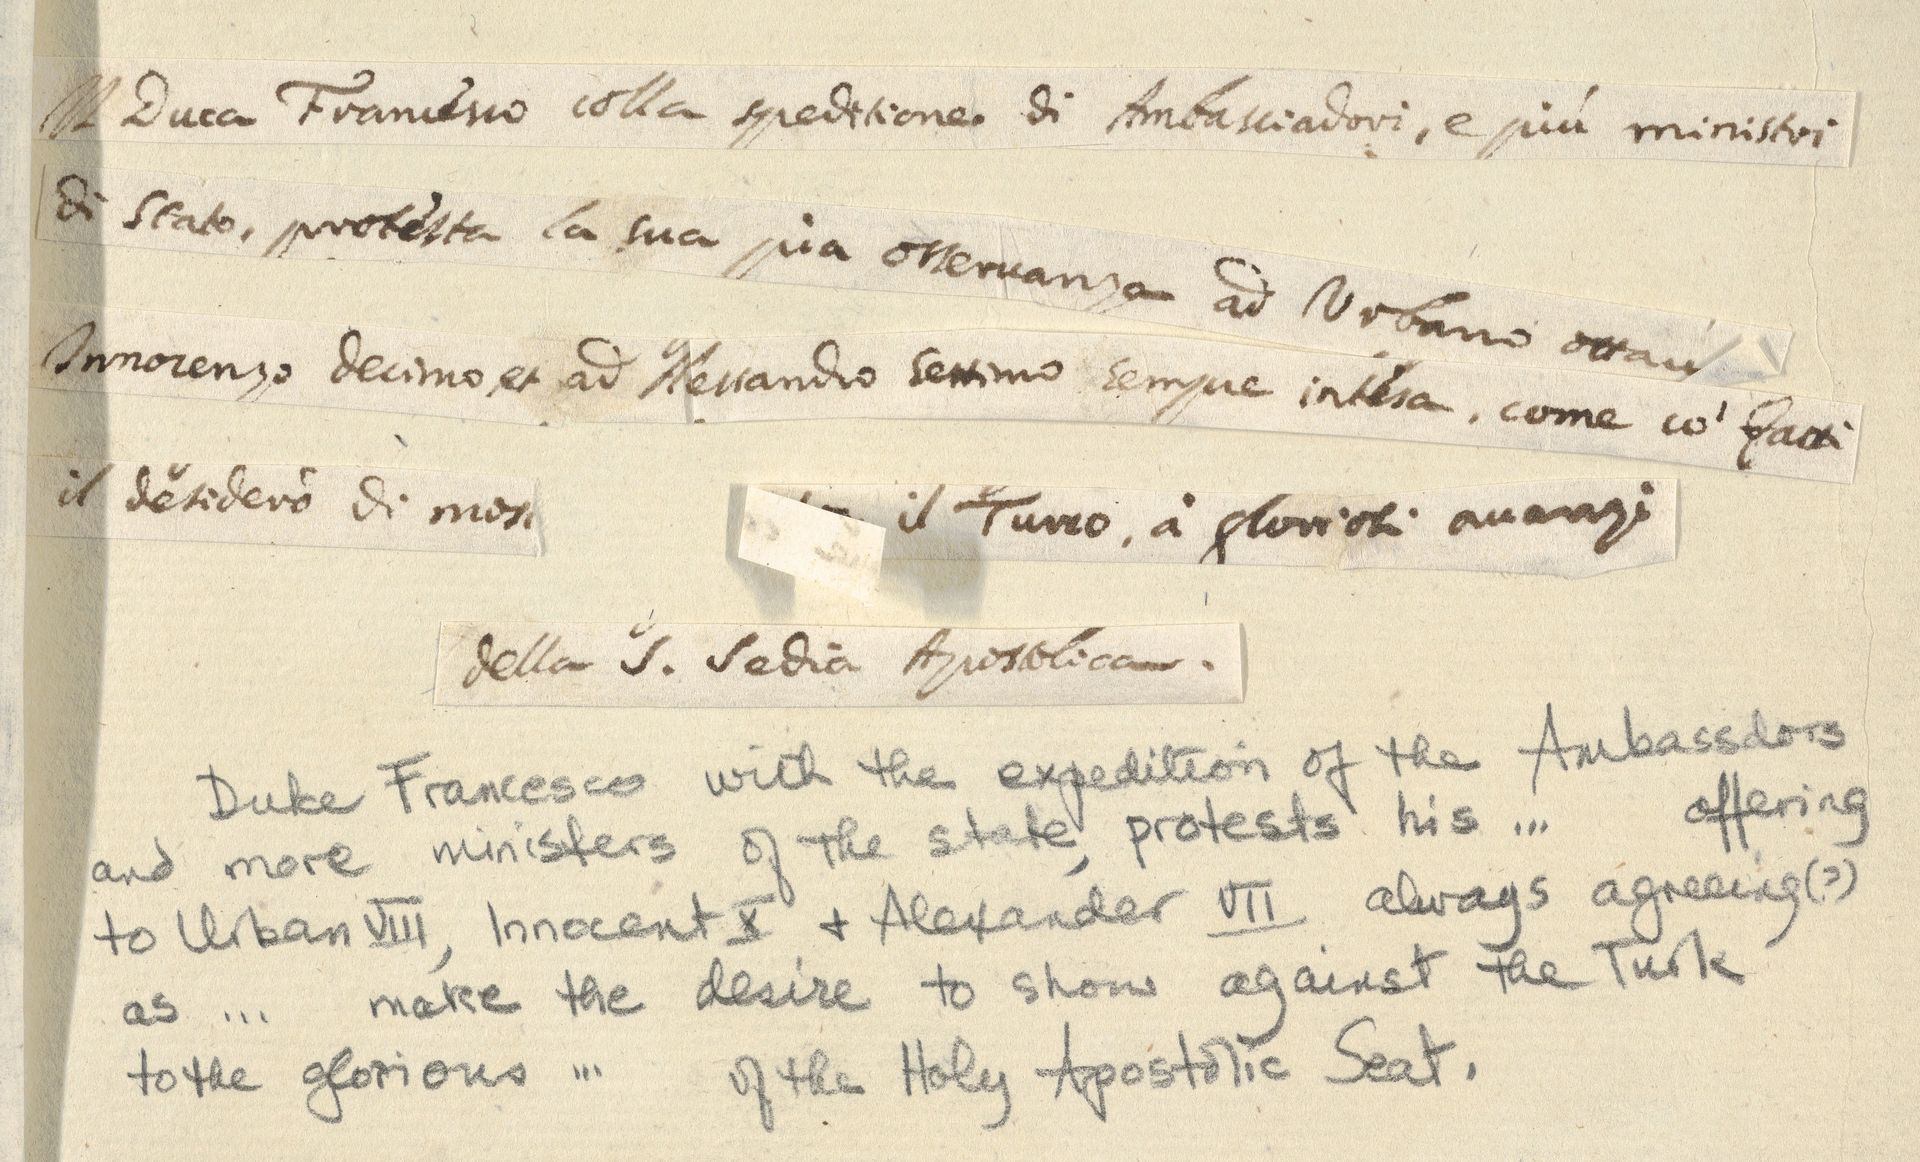 Il Duca Francesco colla speditione di Ambasciadori, e più ministri
di Stato, protesta la sua pia osseruanza ad Urbano ottau
Innocenzo decimo, et ad Alessandro settimo sempre intesa, come co' fatti
il desiderò di mos il Turco, à gloriosi auanzi
della S. Sedia Apostolica.
Duke Francesco with the expedition of the Ambassdors
and more ministers of the state, protests his ... offering
to Urban VIII, Innocent X + Alexander VII always agreeing(?)
as ... make the desire to show against the Turk
to the glorious ... of the Holy Apostolic Seat.